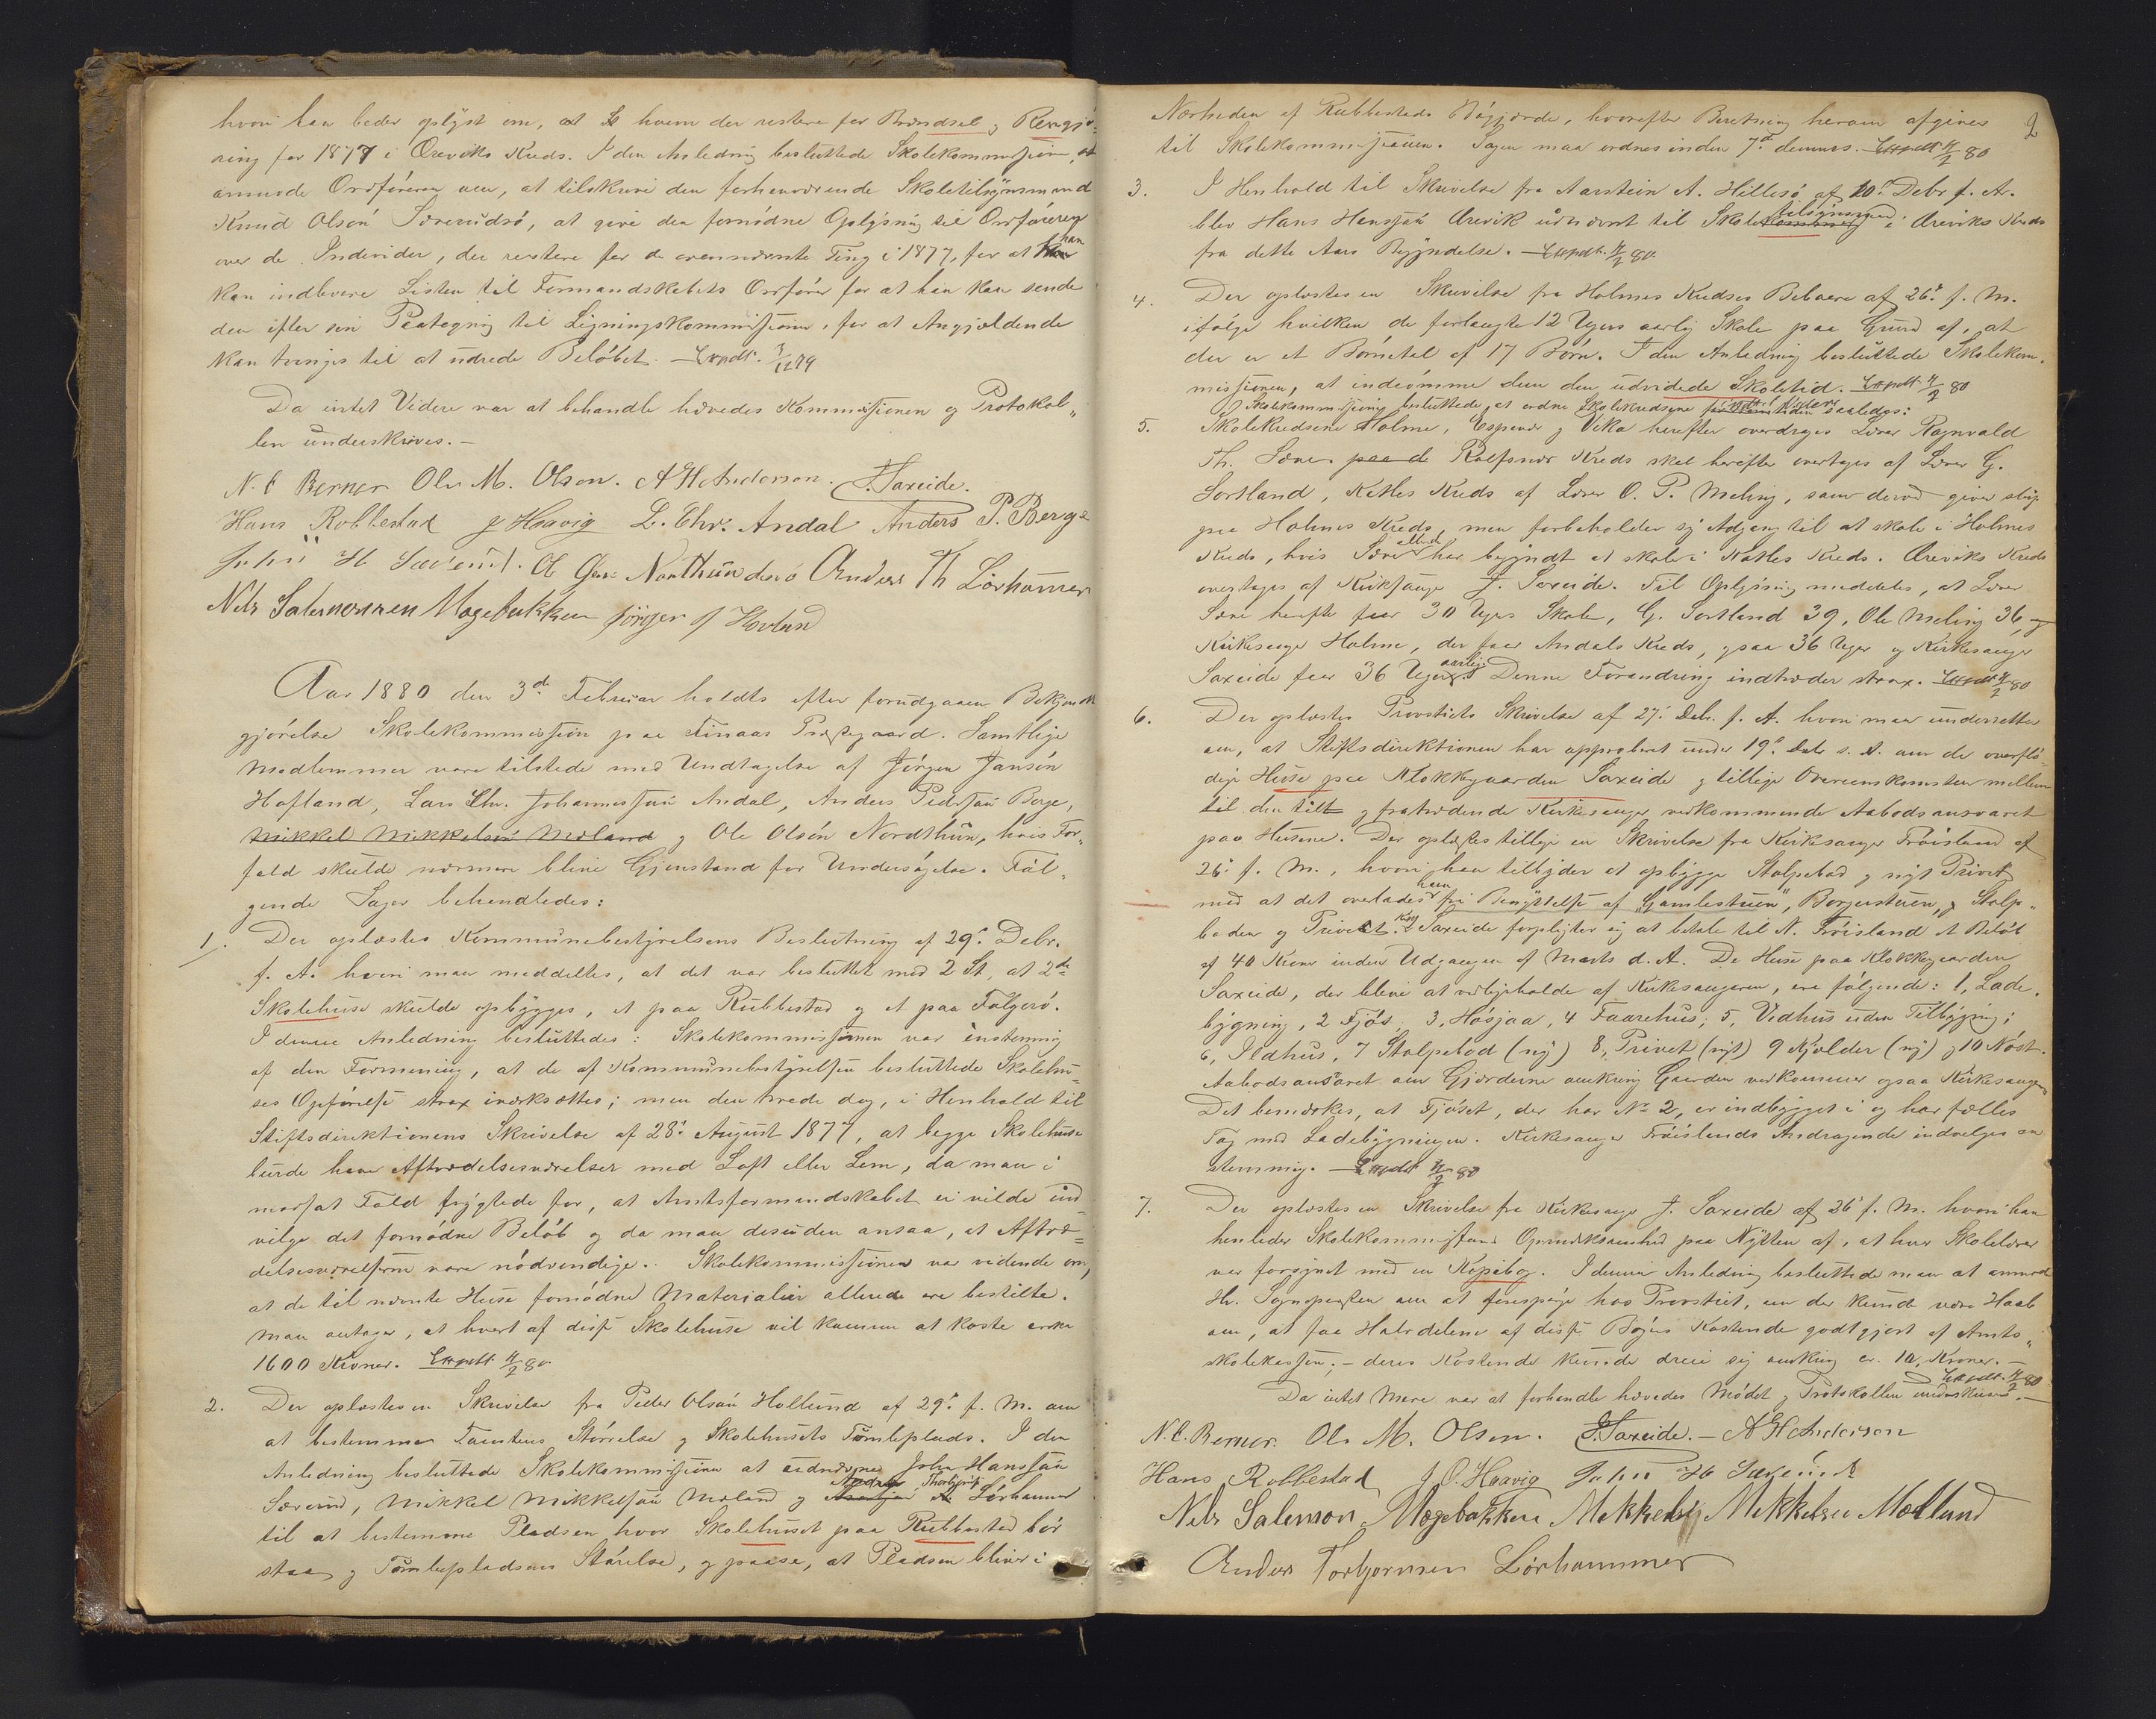 hvori han beder oplyst om, at hvem der restere for Brændsel og Rengjø-
ring for 1877 i Øreviks Kreds. I den Anledning besluttede Skolekommissionen, at
anmode Ordføreren om, at tilskrive den forhenværende Skoletilsynsmand
Knud Olsøn Særvoldsø, at give den fornødne Oplysning til Ordføreren
over de Individer, der restere for de ovennævnte Ting i 1877, for at han
kan indlevere Listen til Formandskabets Ordfører for at han kan sende
den efter sin Paategning til Ligningskommissionen, for at Angjældende
kan tvinges til at udrede Beløbet. – Expdt. 3/12 79
Da intet Videre var at behandle hævedes Kommissionen og Protokol„
len underskrives. –
N. C Berner Ole M. Olsen. A H Anderson. J. Saxeide.
Hans Robbestad J Haavig L. Chr. Andal Anders P. Berge
John H Sæverud. Ol Ols: Northundsø Anders Th Lørhamer
Nels Salemonsen Magebakken Jørgen J Hovland
Aar 1880 den 3d Februar holdtes efter forudgaaen Bekjendt
gjørelse Skolekommission paa Finaas Præstegaard. Samtlige
Medlemmer vare tilstede med Undtagelse af Jørgen Jansøn
Hafland, Lars Chr. Johannessøn Andal, Anders Pedersøn Berge,
Mikkel Mikkelsøn Moland og Ole Olsøn Nordthun, hvis For„
fald skulde nærmere blive Gjenstand for Undersøgelse. Føl„
gende Sager behandledes:
1. Der oplæstes Kommunebestyrelsens Beslutning af 29. Debr.
f. A. hvori man meddeltes, at det var besluttet med 2 St, at 2de
Skolehuse skulde opbygges, et paa Rubbestad og et paa Folgerø.
I denne Anledning besluttedes: Skolekommissionen var enstemmig
af den Formening, at de af Kommunebestyrelsen besluttede Skolehu-
ses Opførelse strax iværksættes; men den troede dog, i Henhold til
Stiftsdirektionens Skrivelse af 28. August 1877, at begge Skolehuse
burde have Aftrædelsesværelser med Loft eller Lem, da man i
modsat Fald frygtede for, at Amtsformandskabet ei vilde ind
vilge det fornødne Beløb og da man desuden ansaa, at Aftræ=
delsesværelserne vare nødvendige. Skolekommissionen var vidende om,
at de til nævnte Huse fornødne Materialier allerede ere bestilte.
Man antager, at hvert af disse Skolehuse vil komme at koste cirka
1600 Kroner. Expdt 4/2 80
2. Der oplæstes en Skrivelse fra Peder Olsøn Hollund af 29. f. M. om
at bestemme Tomtens Størrelse og Skolehusets Tomteplads. I den
Anledning besluttede Skolekommissionen at udnævne John Hanssøn
Særvold, Mikkel Mikkelsøn Moland og Anders Thorbjørns. Lørhammer
til at bestemme Pladsen, hvor Skolehuset paa Rubbestad bør
staa og Tomtepladsens Størelse, og paase, at Pladsen bliver i
2
Nærheden af Rubbestads Bøgjærde, hvorefter Beretning herom afgives
til Skolekommissionen. Sagen maa ordnes inden 7de dennes. Expdt 4/2 80
3. I Henhold til Skrivelse fra Aarstein A. Hillesø af 20. Debr f. A.
blev Hans Hanssøn Ørevik udnævnt til Skoletilsynsmand i Øreviks Kreds
fra dette Aars Begyndelse. – Expdt. 4/2 80.
4. Der oplæstes en Skrivelse fra Holmes Kredses Beboere af 26. f. M.
ifølge hvilken de forlangte 12 Ugers aarlig Skole paa Grund af, at
der er et Børnetal af 17 Børn. I den Anledning besluttede Skolekom„
missionen, at indrømme dem den udvidede Skoletid. Expdt 4/2 80
Skolekommissionen besluttede at ordne Skolekredsene saaledes:
5. Skolekredsene Holme, Espevær og Vika herefter overdrages Lærer Ragnvald
Th. Søre. paa d Rolfsnæs Kreds skal herefter overtages af Lærer G.
Sortland, Katles Kreds af Lærer O. P. Meling, som derved giver slip
paa Holmes Kreds, men forbeholder sig Adgang til at skole i Holmes
Kreds, hvis Søre allerede har begyndt at skole i Katles Kreds. Øreviks Kreds
overtages af Kirkesanger J. Saxeide. Til Oplysning meddeles, at Lærer
Søre herefter faar 30 Ugers Skole, G. Sortland 39, Ole Meling 36, og
Kirkesanger Holme, der faar Andals Kreds, ogsaa 36 Uger og Kirkesanger
Saxeide faar 36 Uger aarlig. Denne Forandring indtræder strax. Expdt 4/2 80
6. Der oplæstes Provstiets Skrivelse af 27. Debr. f. A. hvori man underrettes
om, at Stiftsdirektionen har approberet under 19. Debr s. A. om de overflø-
dige Huse paa Klokkegaarden Saxeide og tillige Overeenskomsten mellem
til den tilt og fratrædende Kirkesanger vedkommende Aabodsansvaret
paa Husene. Der oplæstes tillige en Skrivelse fra Kirkesanger Frøisland af
26. f. M., hvori han tilbyder at opbygge Stolpebod og nyt Privet
med at det overlades ham fri Benyttelse af „Gamlestuen“, Borgerstuen, og Stolp„
boden og Privetet. Saxeide forpligter sig at betale til N. Frøisland et Beløb
af 40 Kroner inden Udgangen af Marts d. A. De Huse paa Klokkegaarden
Saxeide, der bleve at vedligeholde af Kirkesangeren, ere følgende: 1, Lade„
bygning, 2 Fjøs, 3, Høsjaa, 4 Faarehus; 5, Vedhus uden Tilbygning;
6, Ildhus, 7 Stolpebod (ny) 8, Privet (nyt) 9 Kjælder (ny) og 10 Nøst.
Aabodsansvaret om Gjærderne omkring Gaarden vedkommer ogsaa Kirkesangeren
Det bemærkes, at Fjøset, der har No 2, er indbygget i og har fælles
Tag med Ladebygningen. Kirkesanger Frøislands Andragende indvilges en
stemmig. – Expdt 4/2 80
7. Der oplæstes en Skrivelse fra Kirkesanger J. Saxeide af 26. f. M. hvori han
henleder Skolekommissionens Opmærksomhed paa Nytten af, at hver Skolelærer
var forsynet med en Kopibog. I denne Anledning besluttede man at anmode
Hr. Sognepresten om at forespørge hos Provstiet, om der kunde være Haab
om, at faa Halvdelene af disse Bøgers Kostende godtgjort af Amts„
skolekassen; – deres Kostende kunde dreie sig omkring ca. 10, Kroner. –
Expdt. 4/2 80
Da intet Mere var at forhandle hævedes Mødet og Protokollen underskreves. –
N. C. Berner. Ole M. Olsen. J. Saxeide. – A H Anderson
Hans Robbestad J. O. Haavig John H Sæverud
Nels Salemon. Magebakken Mekkel Mekkelsen Moeland
Anders Torbjørnsen Lørhammer